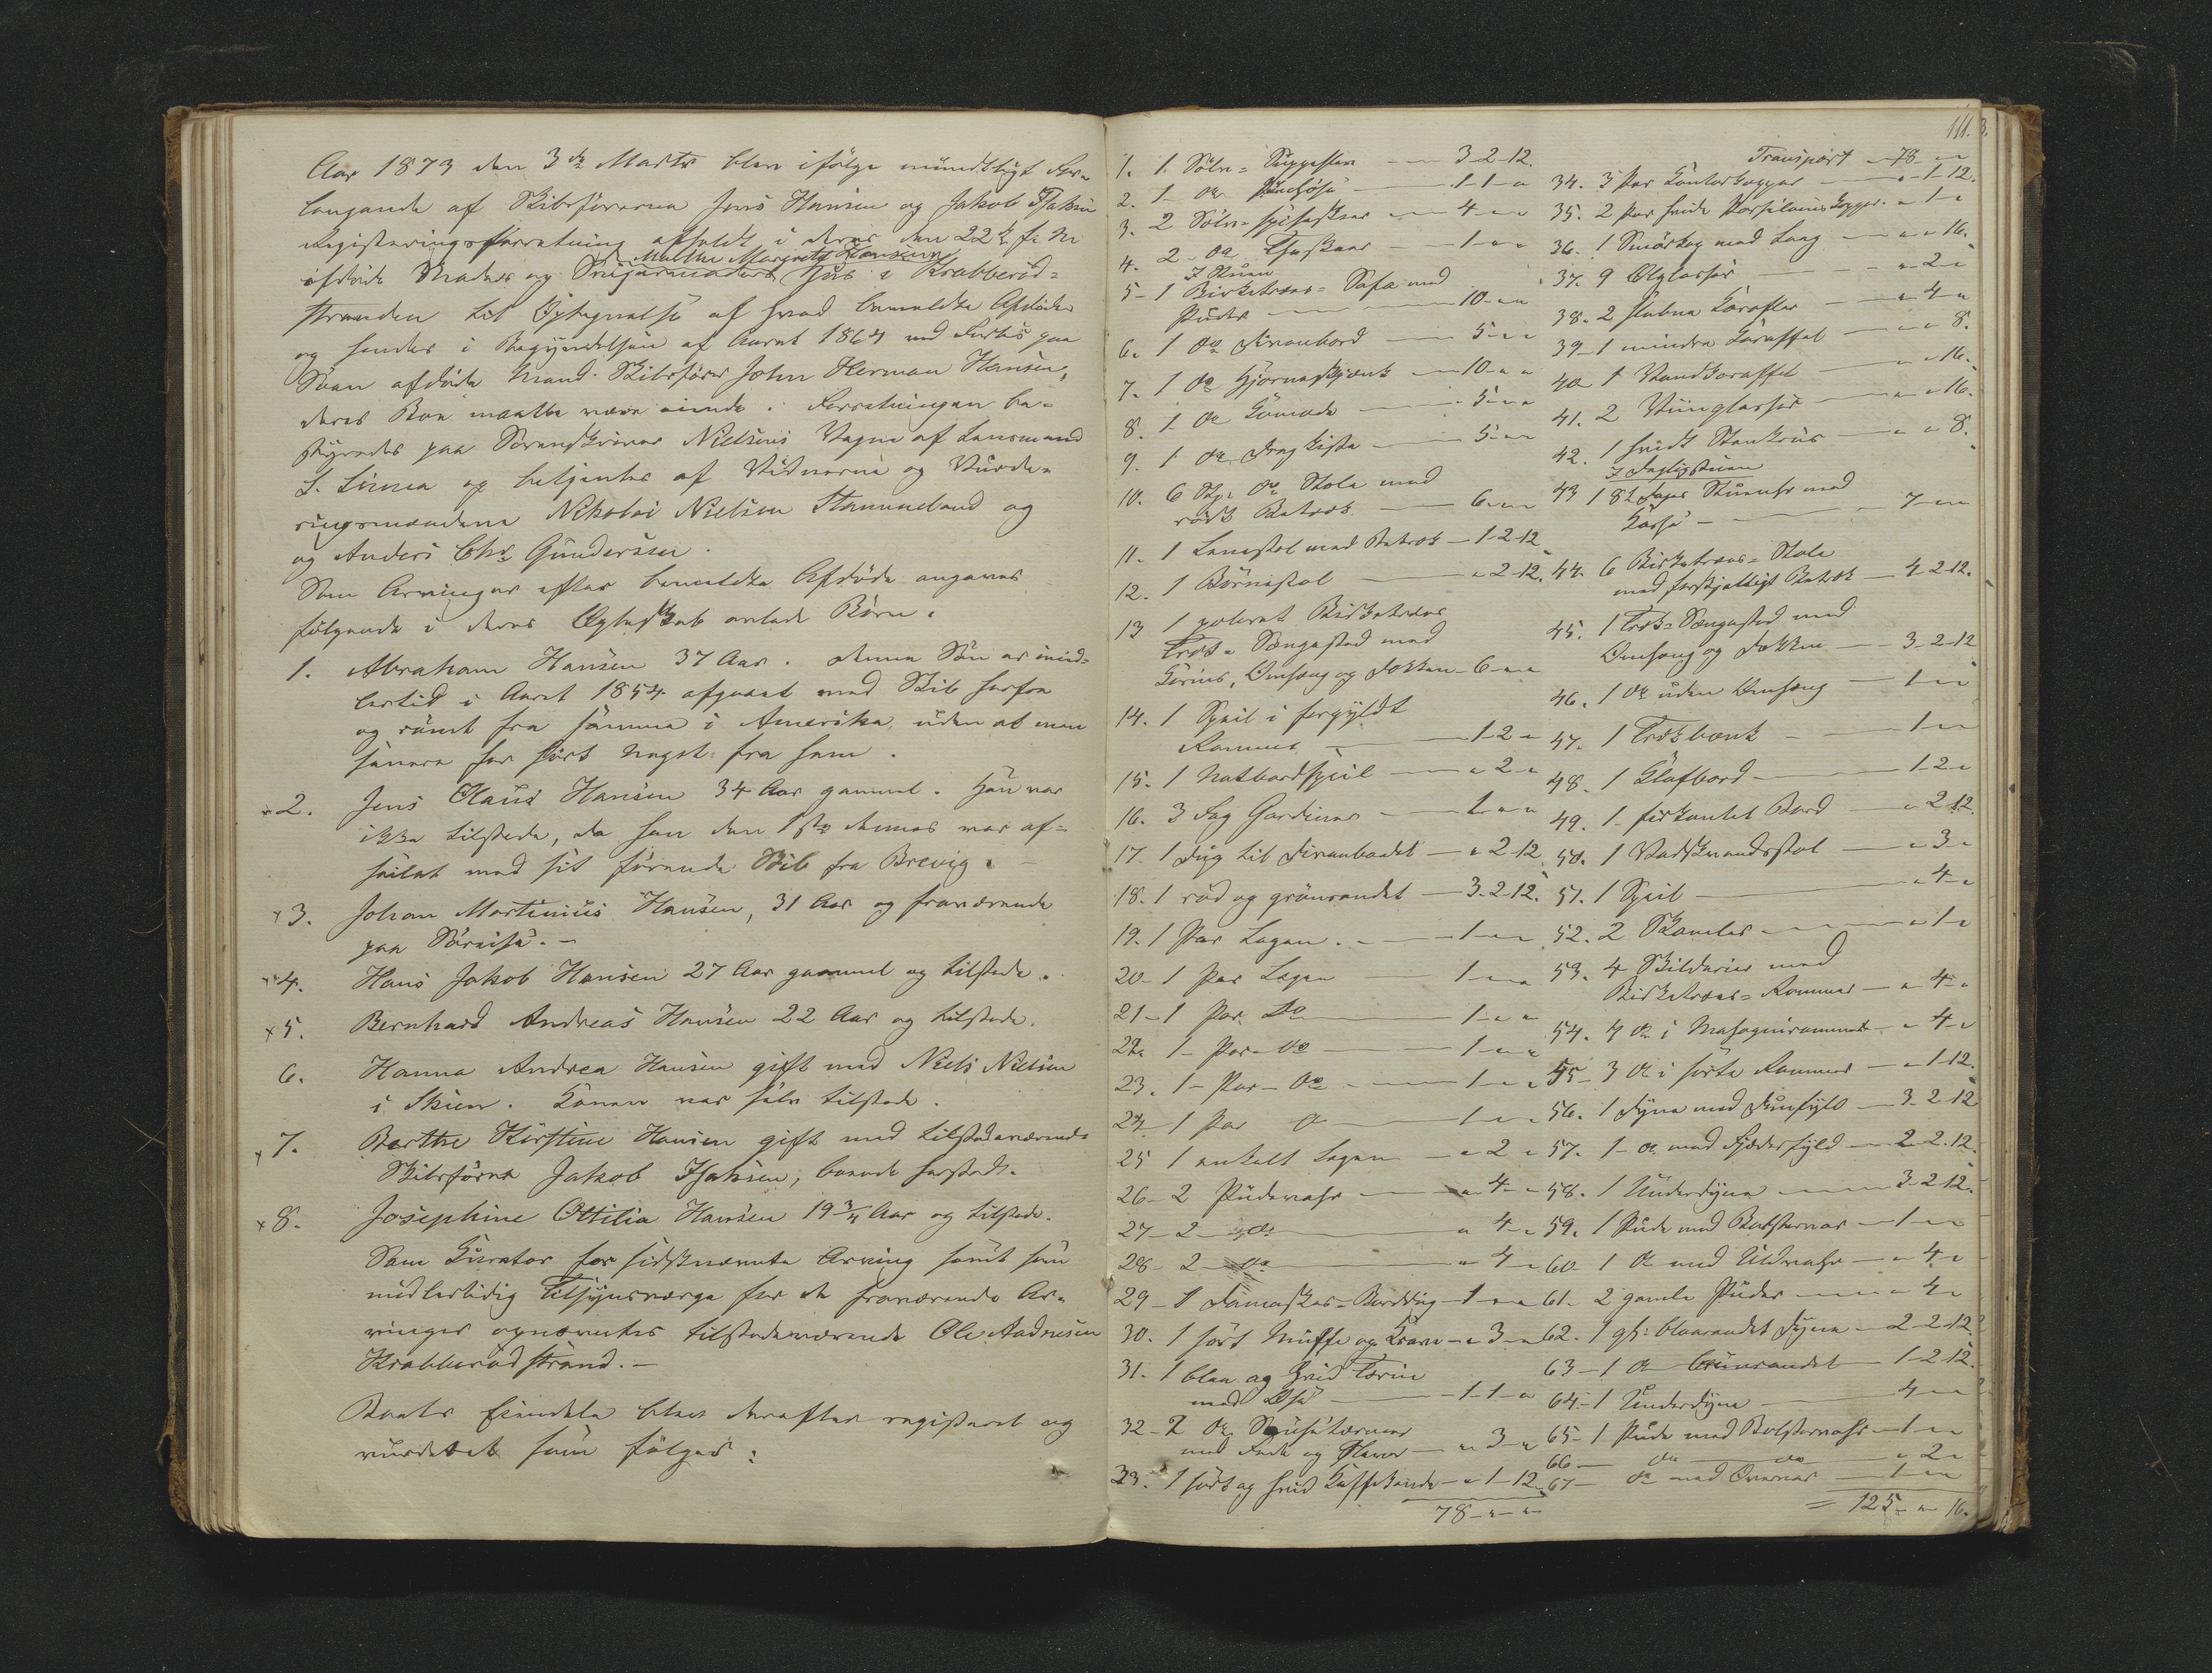 Aar 1873 den 3de Marts blev ifölge mündtligt For-
langende af Skibsförerne Jens Hansen og Jakob Isaksen
Registreringsforretning afholdt i deres den 22de f. M.
Malthe Margrethe Hansens
afdöde Moder og Svigermoders Huus i Krabberöd-
stranden til Optegnelse af hvad bemeldte Afdöde
og hendes i Begyndelsen af Aaret 1864 ved Forliis paa
Söen afdöde Mand Skibsförer John Herman Hansen,
deres Boe maatte være eiende. Forretningen be-
styredes paa Sorenskriver Nielsens Vegne af Lensmand
S. Linnea og betjentes af Vidnerne og Vurde-
ringsmændene Nikolai Nielsen Stammeland og
og Anders Chr. Gundersen.
Som Arvinger efter bemeldte Afdöde angaves
fölgende i deres Ægteskab avlede Börn:
1. Abraham Hansen 37 Aar. Denne Sön er imid-
lertid i Aaret 1854 afgaaet med Skib herfra
og römt fra samme i Amerika, uden at man
senere har hört Noget fra ham.
2. Jens Klaus Hansen 34 Aar gammel. Han var
ikke tilstede, da han den 1ste dennes var af-
seilet med sit förende Skib fra Brevig.
3. Johan Martinius Hansen, 31 Aar og fraværende
paa Söreise.
4. Hans Jakob Hansen 27 Aar gammel og tilstede.
5. Bernhard Andreas Hansen 22 Aar og tilstede.
6. Hanna Andrea Hansen gift med Niels Nielsen
i Skien. Konen var selv tilstede.
7. Berthe Kirstine Hansen gift med tilstedeværende
Skibsförer Jakob Isaksen, boende hersteds.
8. Josephine Ottilia Hansen 19 3/4 Aar og tilstede.
Som Kurator for sidstnævnte Arving samt som
midlertidig Tilsynsværge for de fraværende Ar-
vinger opnævntes tilstedeværende Ole Andresen
Krabberödstrand.
Boets Eiendele blev derefter registreret og
vurderet som fölger:
111.
1. 1 Sölv- Suppeskee 3-2-12.
2. 1 do 1-1-"
3. 2 Sölv- Spiseskeer 4-"-"
4. 2 do Theskeer 1-"-"
I Stuen
5. 1 Birketræes- Sofa med
Puder 10-"-"
6. 1 do Divanbord 5-"-"
7. 1 do Hjörneskjænk 10-"-"
8. 1 do Komode 5-"-"
9. 1 do Dragkiste 5-"-"
10. 6 Stk. do Stole med
rödt Betræk 6-"-"
11. 1 Lænestol med Betræk 1-2-12
12. 1 Börnestol "-2-12.
13 1 poleret Birketræes
Træk- Sengested med
Omhæng og Dækken 6-"-"
14. 1 Speil i forgyldt
Ramme 1-2-"
15. 1 Natbordspeil "-2-"
16. 3 Fag Gardiner 1-"-"
17. 1 Dug til Divanbordet "-2-12
18. 1 röd og grönrandet 3-2-12.
19. 1 Par Lagen 1-"-"
20. 1 Par Lagen 1-"-"
21. 1 Par Do 1-"-"
22. 1 Par do 1-"-"
23. 1 Par do 1-"-"
24. 1 Par do 1-"-"
25 1 enkelt Lagen "-2-"
26. 2 Pudevahr "-4-"
27. 2 do "-4-"
28. 2 do "-4-"
29. 1 Damaskes- Borddug 1-"-"
30. 1 sort Muffe og Krave "-3-"
31. 1 blaa og hvid Terin
med 1-1-"
32. 2 do
med Fade og "-3-"
33. 1 sort og hvid Kaffekande "-1-12
78-"-"
Transport 78-"-"
34. 3 Par Kontorkopper "-1-12.
35. 2 Par hvide Porselæins Kopper "-1-"
36. 1 Smörkop med Laag "-"-16.
37. 9 Ölglasser "-2-"
38. 2 slebne Karafler "-4-"
39. 1 mindre Karaffel "-"-8.
40. 1 Vandkaraffel "-"-16.
41. 2 Viinglasser "-"-16.
42. 1 hvidt Steenkrus "-"-8.
I Dagligstuen
43 1 8te Dages Stueuhr med
Kasse 7-"-"
44. 6 Birketræes- Stole
med forskjelligt Betræk 4-2-12.
45. 1 Træk- Sængested med
Omhæng og Dækken 3-2-12
46. 1 do uden Omhæng 1-"-"
47. 1 Trækbænk 1-"-"
48. 1 Klafbord 1-2-"
49. 1 firkantet Bord "-2-12.
50. 1 Vadskevandsstol "-3-"
51. 1 Speil "-4-"
52. 2 Skamler "-1-"
53. 4 Skilderier med
Birketræes- Rammer "-4-"
54. 4 do i Mahognirammer "-4-"
55. 3 do i sorte Rammer "-1-12.
56. 1 Dyne med Duunfyld 3-2-12
57. 1 do med Fjæderfyld 2-2-12.
58. 1 Underdyne 3-2-12.
59. 1 Pude med Bolstervar 1-"-"
60. 1 do med Uldvahr "-4-"
61. 2 gamle Puder "-4-"
62. 1 gl: blaarandet Dyne 2-2-12.
63. 1 do bruunrandet 1-2-12.
64. 1 Underdyne 4-"-"
65. 1 Pude med Bolstervahr 1-"-"
66 do do "-2-"
67 do med 1-"-"
= 125-"-16.